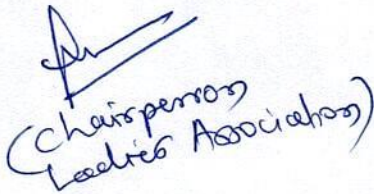 (Chairperson
Ladies Association)